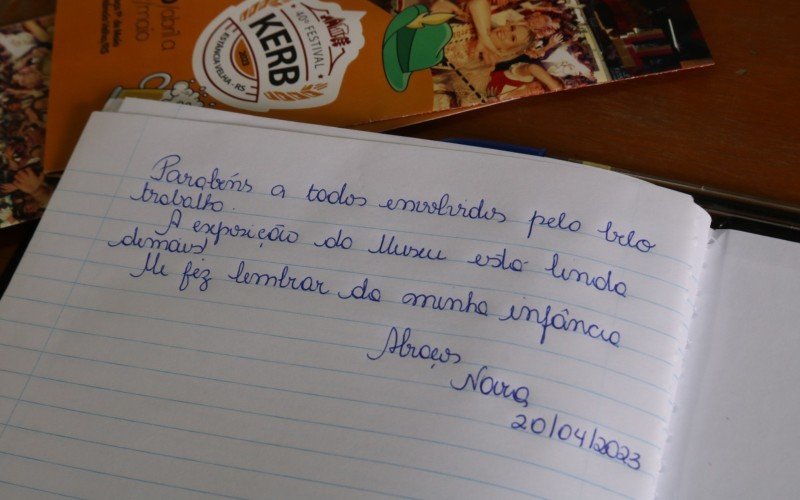 40º FESTIVAL
KERB
ESTÂNCIA VELHA - RS
2023
abril a
maio
Parabéns a todos envolvidos pelo belo
trabalho.
A exposição do Museu está linda
demais!
Me fez lembrar da minha infância
Abraços
Nara
20/04/2023